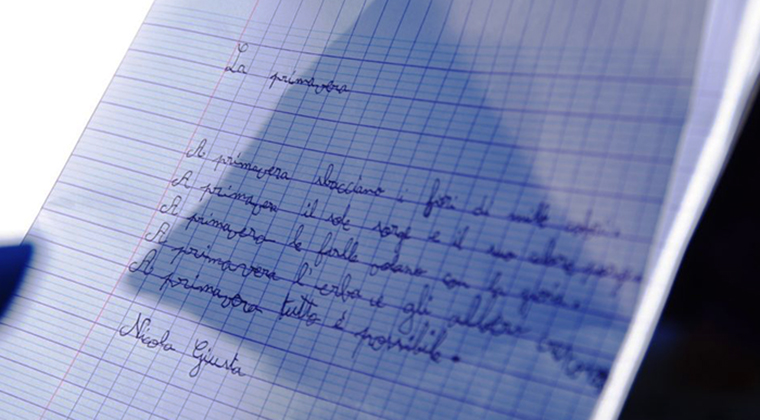 La primavera
A primavera sbocciano i fiori di mille colori.
A primavera il sole sorge e il suo calore
A primavera le farfalle volano con la gioia.
A primavera l'erba e gli alberi
A primavera tutto è possibile.
Nicola Giusta